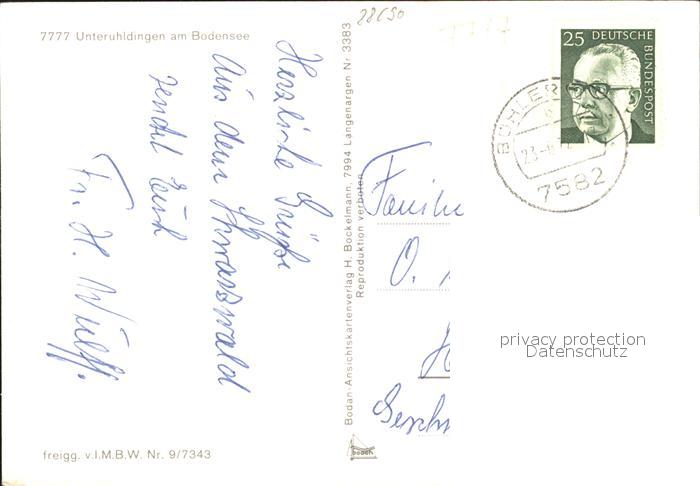 28690
7777 Unteruhldingen am Bodensee
Herzliche Grüße
Aus dem Schwarzwald
sendet Euch
Fr. H. Wulff.
freigg. v.I.M.B.W. Nr. 9/7343
Bodan-Ansichtskartenverlag H. Bockelmann, 7994 Langenargen Nr. 3383
Reproduktion verboten
bodan
25 DEUTSCHE
BUNDESPOST
BÜHLER
23.-6.
7582
Familie
O.
privacy protection
Datenschutz